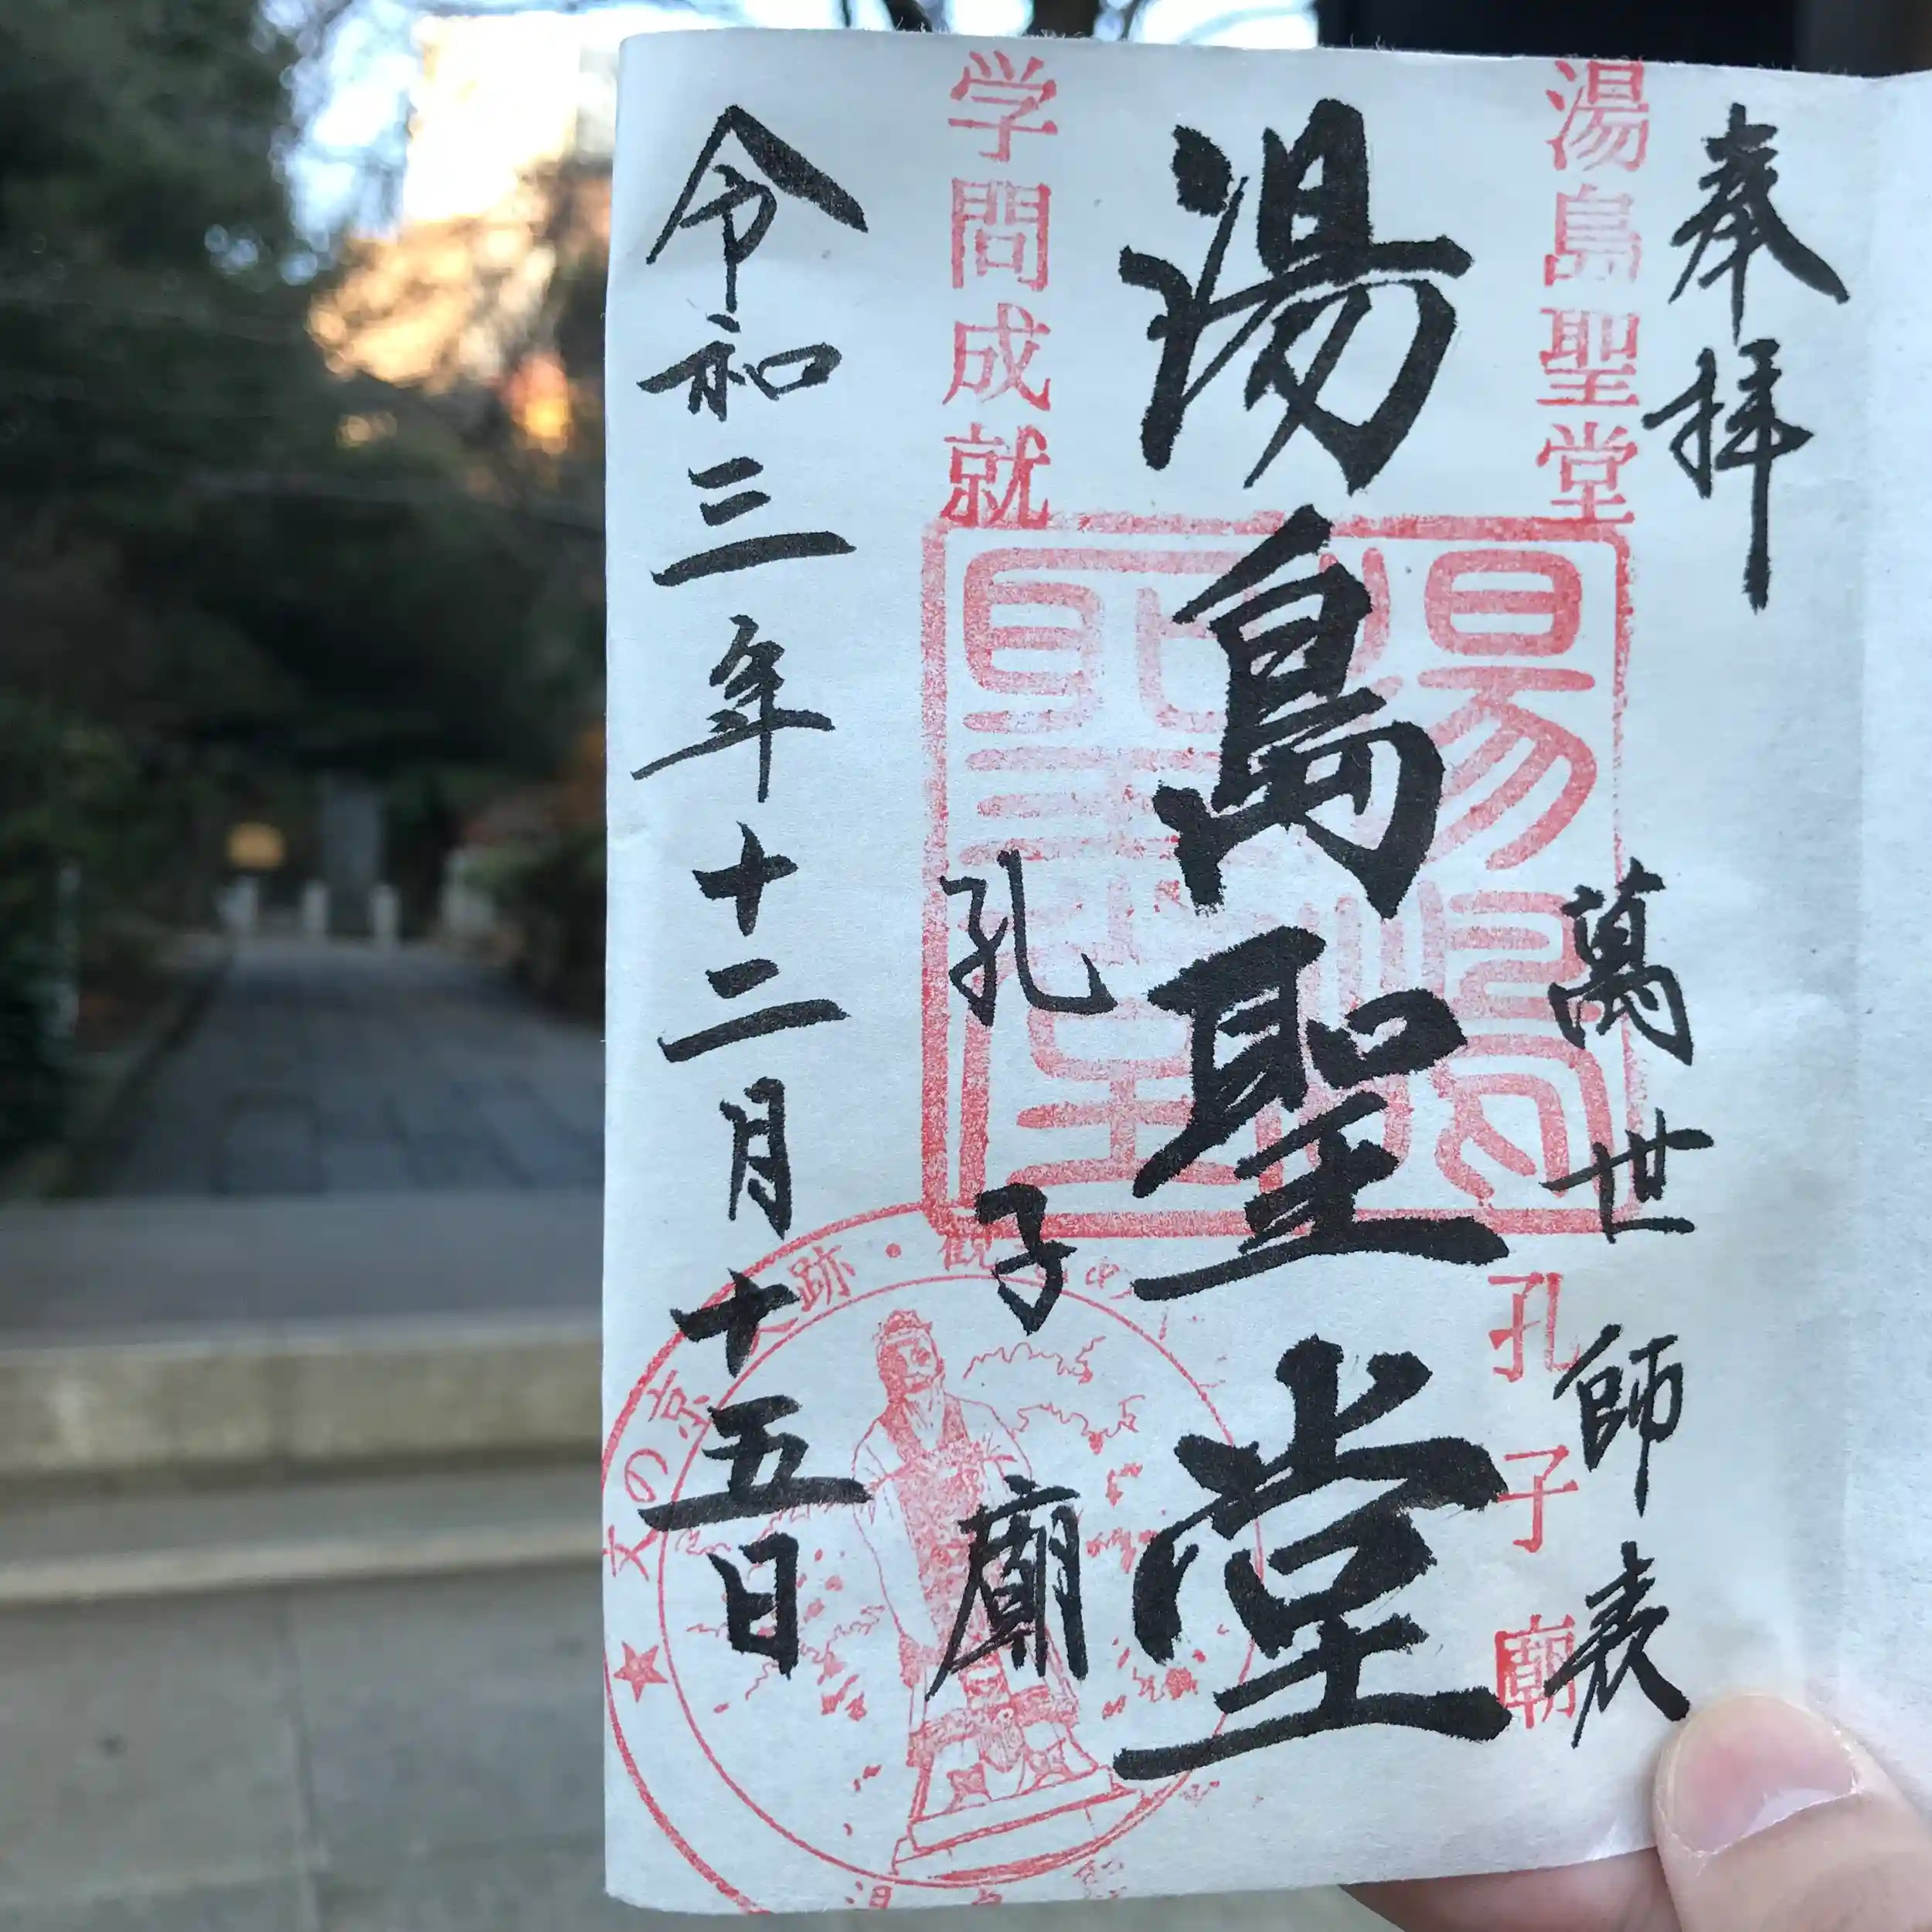 奉拝
湯島聖堂
萬世師表
孔子廟
湯島聖堂
学問成就
孔子廟
令和三年十二月十五日
文の京
跡・観